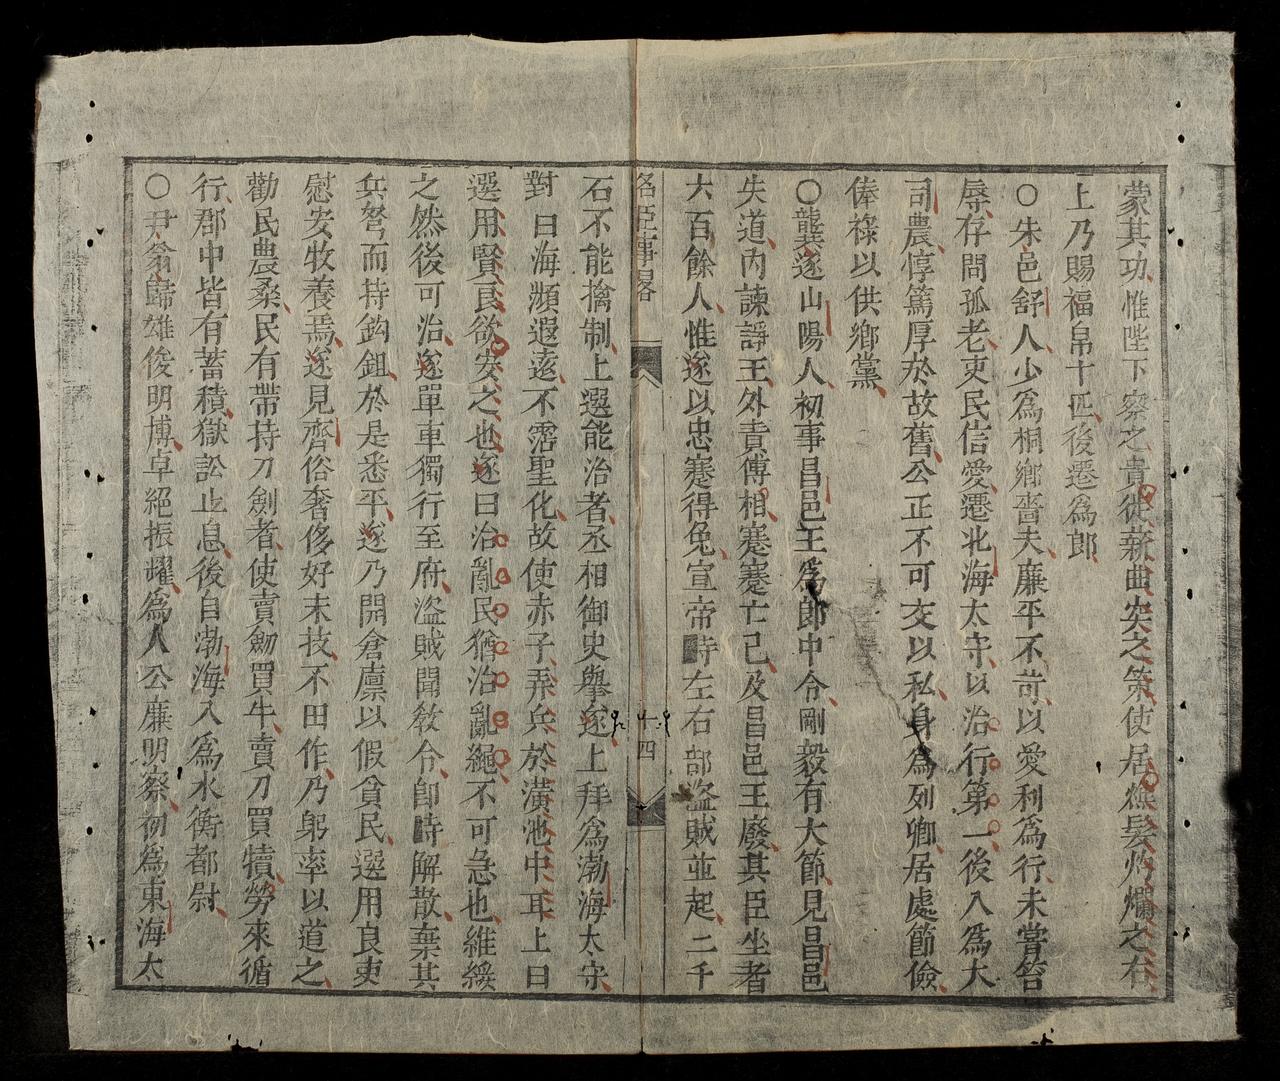 蒙其功惟陛下察之貴徙薪曲突之策使居燋髮灼爛之右
上乃賜福帛十匹後遷為郎
○朱邑舒人少為桐鄉嗇夫廉平不苛以愛利為行未嘗笞
辱存問孤老吏民信愛遷北海太守以治行第一後入為大
司農惇篤厚於故舊公正不可交以私身為列卿居處節儉
俸祿以供鄉黨
○龔遂山陽人初事昌邑王為郎中令剛毅有大節見昌邑
失道內諫諍王外責傅相蹇蹇亡己及昌邑王廢其臣坐者
六百餘人惟遂以忠蹇得免宣帝時左右部盜賊並起二千
名臣事畧
十四
石不能擒制上選能治者丞相御史舉遂上拜為渤海太守
對曰海瀕遐遠不霑聖化故使赤子弄兵於潢池中耳上曰
選用賢良欲安之也遂曰治亂民猶治亂繩不可急也維緩
之然後可治遂單車獨行至府盜賊聞教令卽時解散棄其
兵弩而持鈎鉏於是悉平遂乃開倉廩以假貧民選用良吏
慰安牧養焉遂見齊俗奢侈好末技不田作乃躬率以道之
勸民農桑民有帶持刀劍者使賣劒買牛賣刀買犢勞來循
行郡中皆有蓄積獄訟止息後自渤海入為水衡都尉
○尹翁歸雄俊明博卓絕振耀為人公廉明察初為東海太